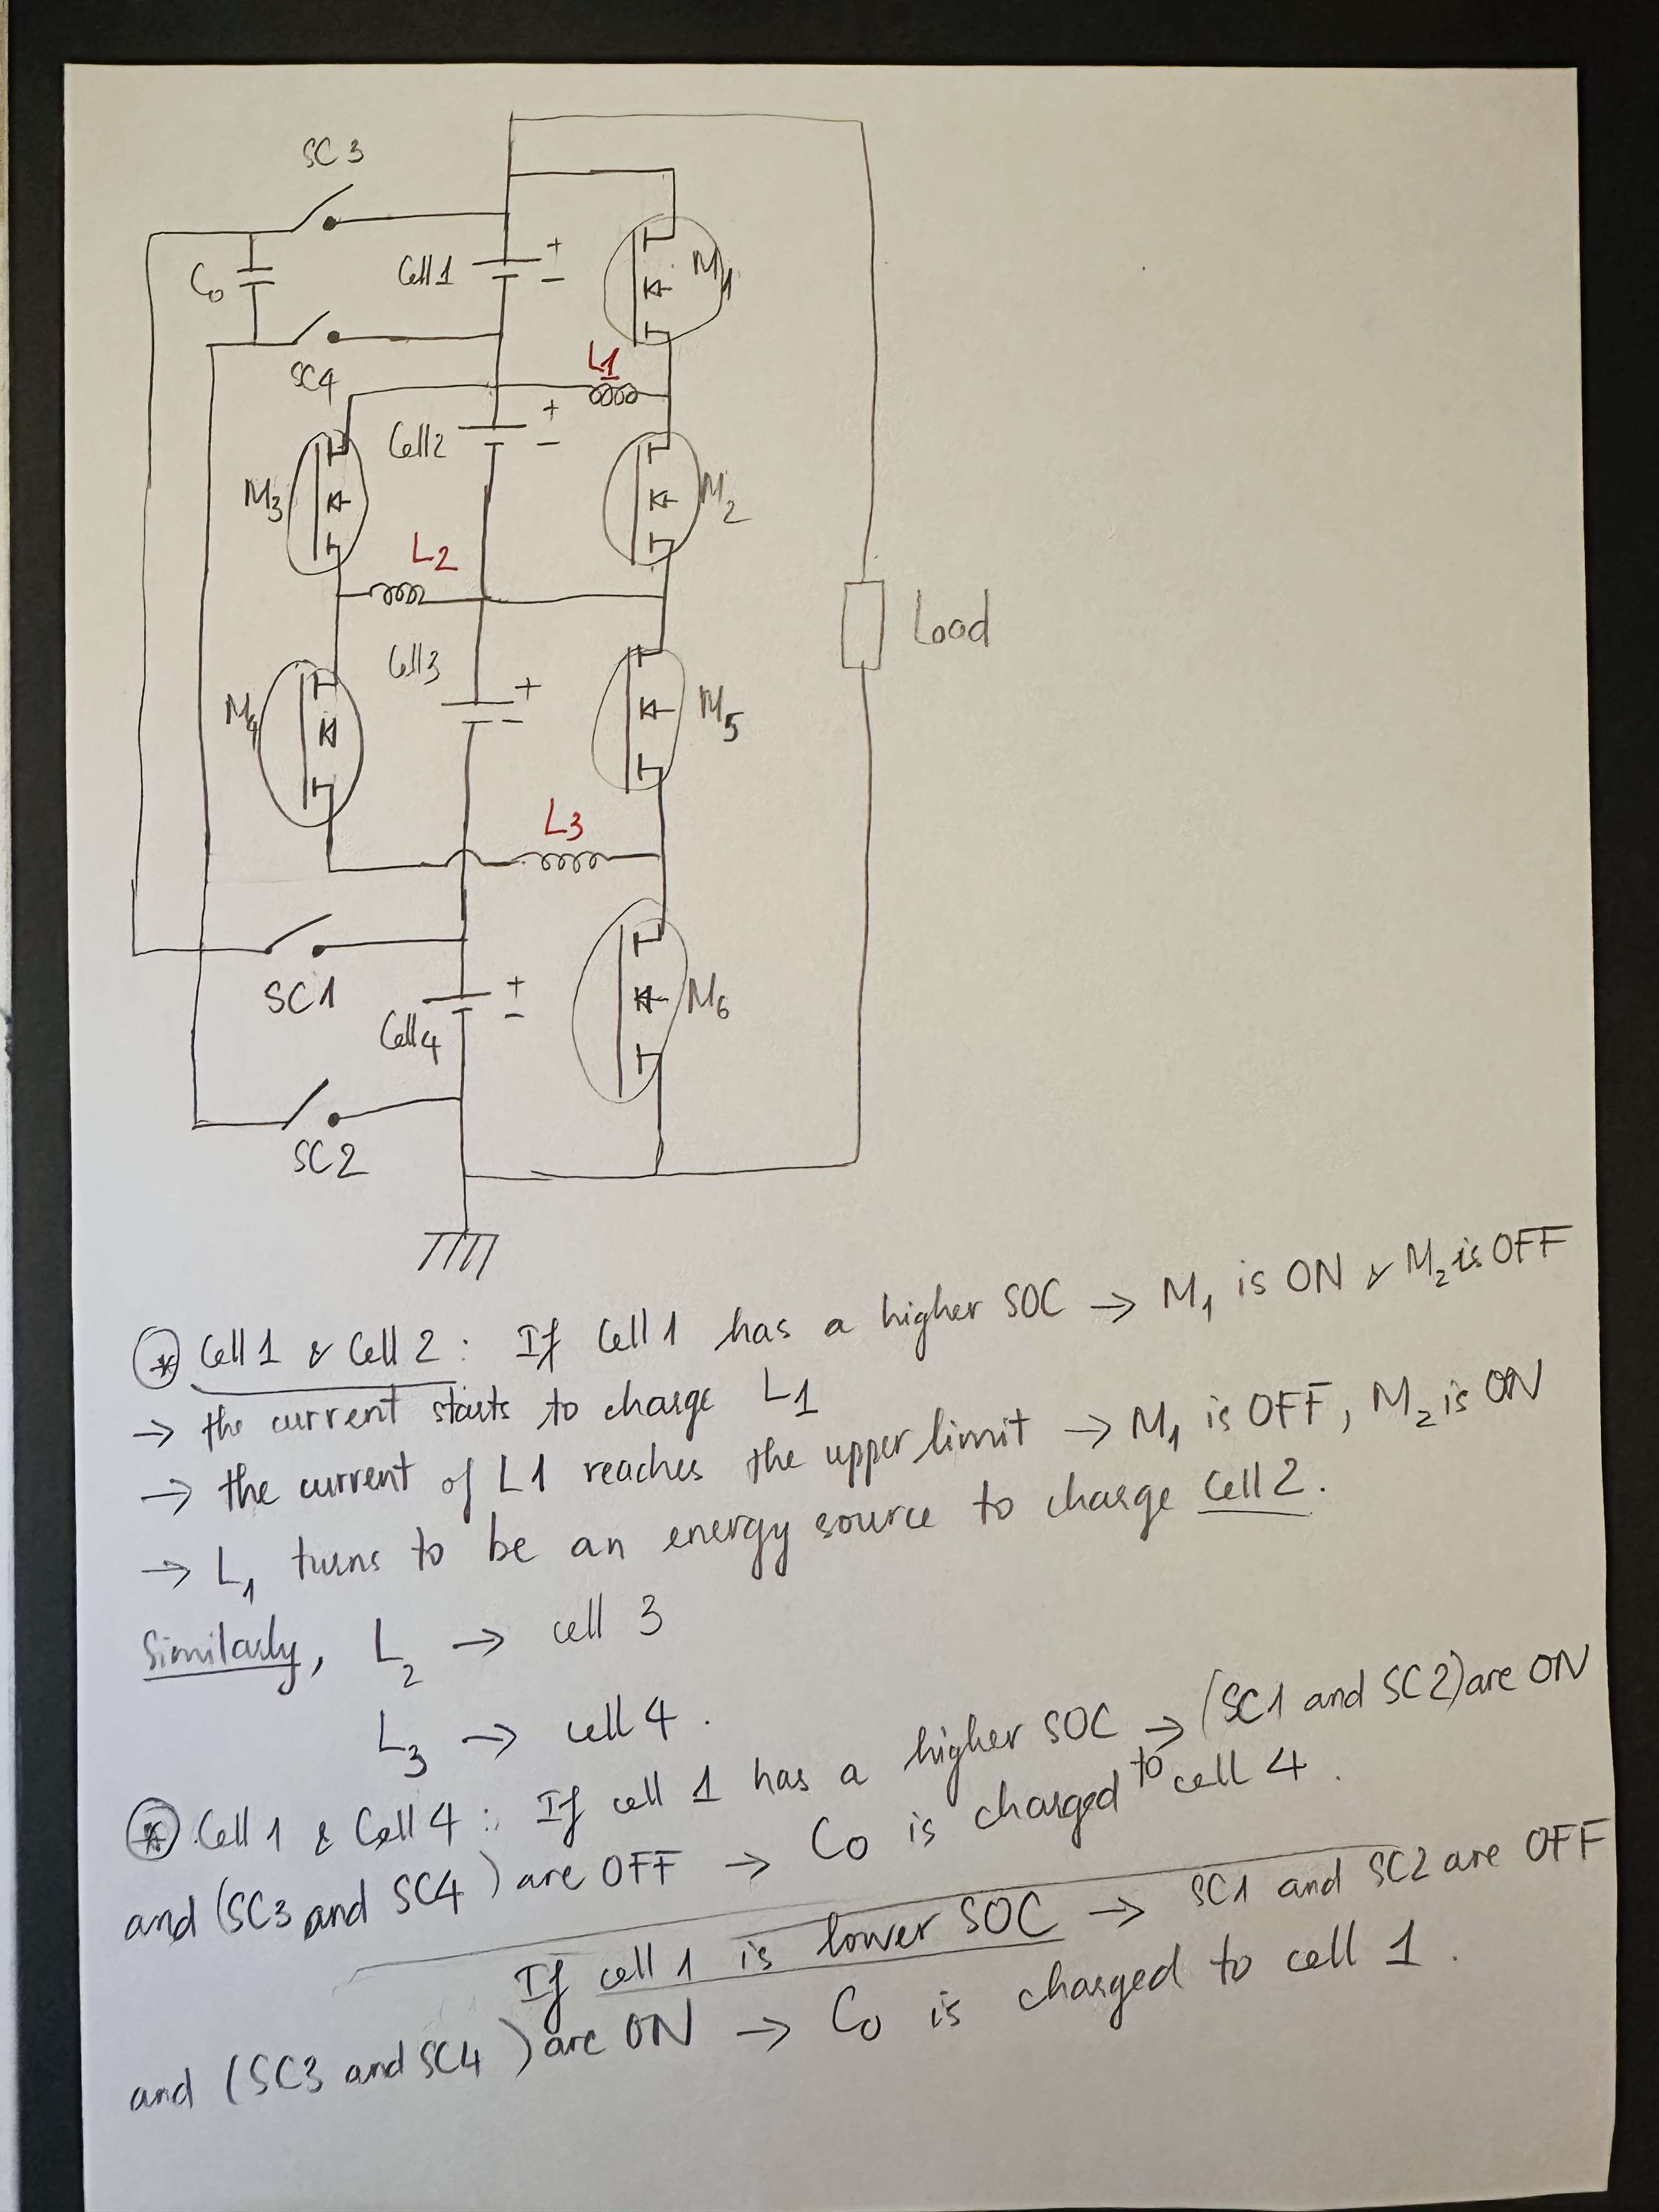 SC3
C₀
Cell1
+
-
M1
SC4
L1
Cell2
+
-
M3
M2
L2
Load
Cell3
+
-
M4
M5
L3
SC1
Cell4
+
-
M6
SC2
* Cell 1 & Cell 2 : If Cell 1 has a higher SOC → M₁ is ON & M₂ is OFF
→ the current starts to charge L1
→ the current of L1 reaches the upper limit → M₁ is OFF, M₂ is ON
→ L₁ turns to be an energy source to charge Cell 2.
Similarly, L₂ → cell 3
L₃ → cell 4.
* Cell 1 & Cell 4 : If cell 1 has a higher SOC → (SC1 and SC2) are ON
and (SC3 and SC4) are OFF → C₀ is charged to cell 4.
If cell 1 is lower SOC → SC1 and SC2 are OFF
and (SC3 and SC4) are ON → C₀ is charged to cell 1.